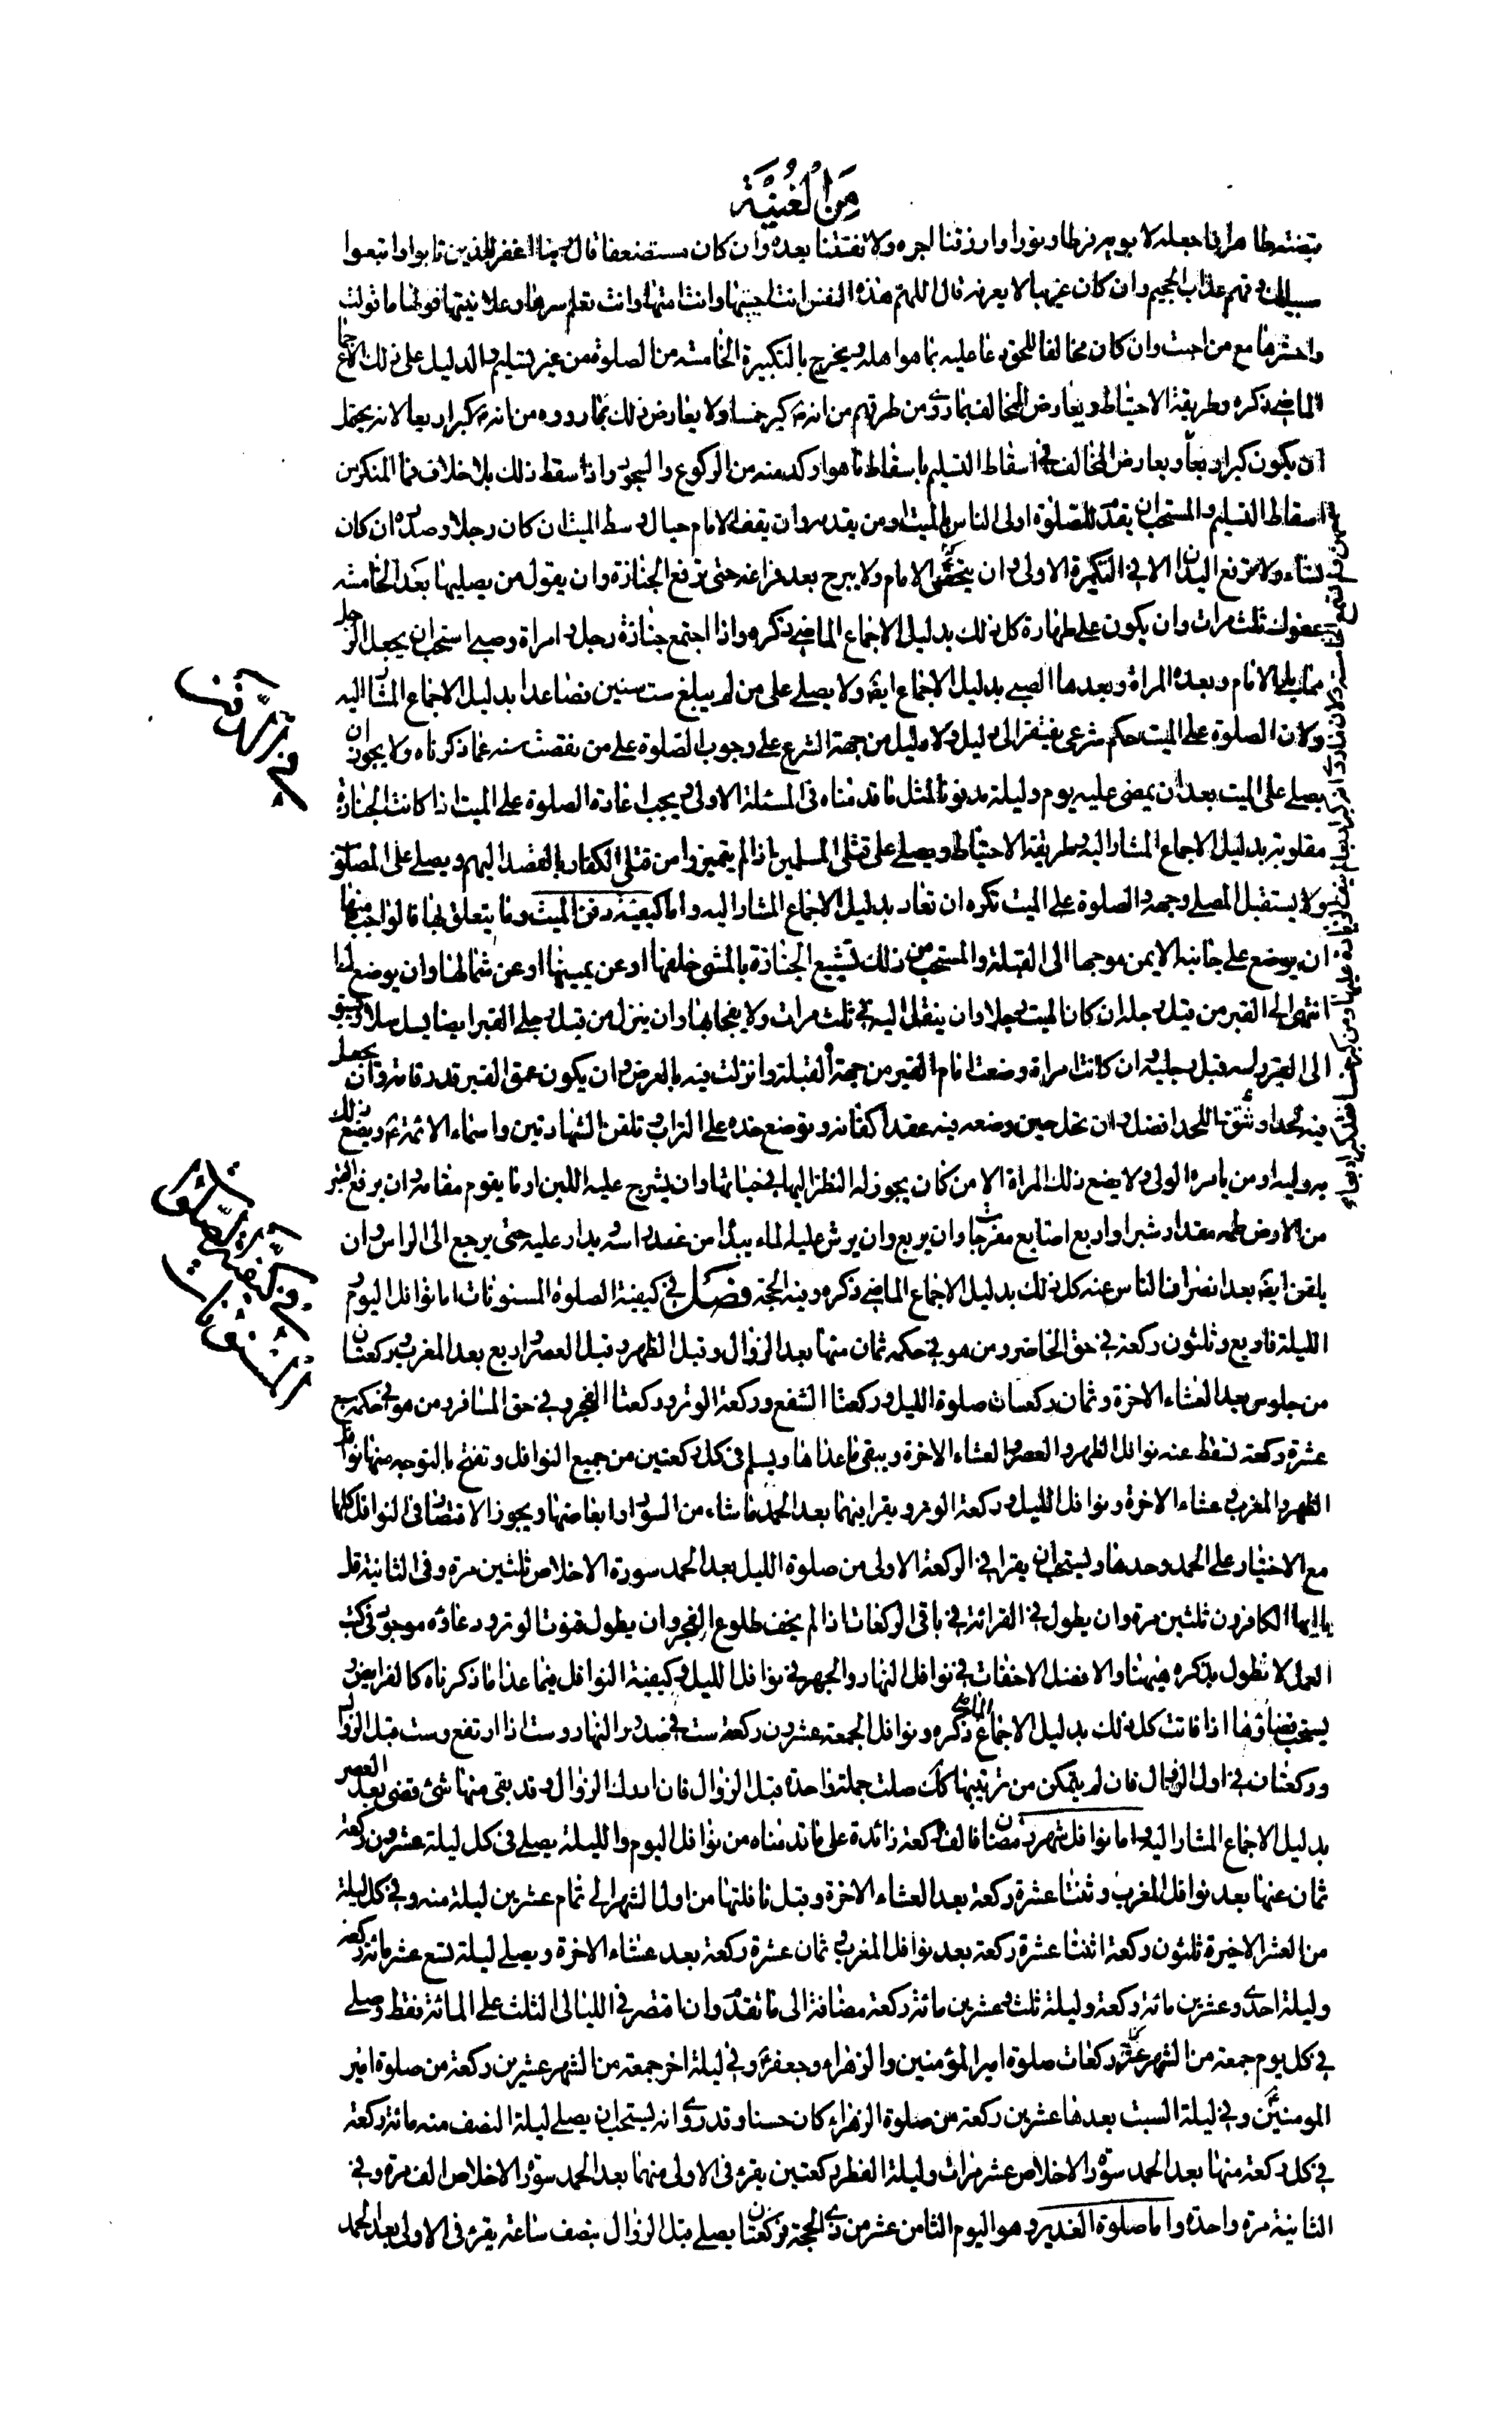 مِنَ الْغُنْيَة
قبضته طاهرا فاجعله لابويه فرطا ونورا وارزقنا اجره ولا تفتنا بعده وان كان مستضعفا قال ربنا اغفر للذين تابوا واتبعوا
سبيلك وقهم عذاب الجحيم وان كان غريبا لا يعرفه قال اللهم هذه النفس انت احييتها وانت امتها وانت تعلم سرها وعلانيتها فولها ما تولت
واحشرها مع من احبت وان كان مخالفا للحق دعا عليه بما هو اهله ويخرج بالتكبيرة الخامسة من الصلوة من غير تسليم والدليل على ذلك الاجماع
الماضي ذكره وطريقة الاحتياط ويعارض المخالف بما روى من طرقهم من انه ع كبر خمسا ولا يعارض ذلك بما رووه من انه ع كبر اربعا لانه يحتمل
ان يكون كبر اربعا ويعارض المخالف في اسقاط التسليم باسقاط ما هو اوكد منه من الركوع والسجود واذا سقط ذلك بلا خلاف فما المنكر من
اسقاط التسليم والمستحب ان يقدم للصلوة اولى الناس بالميت او من يقدمه وان يقف الامام حيال وسط الميت ان كان رجلا وصدره ان كان
لنساء ولا ترفع اليدان الا في التكبيرة الاولى وان يتحفى الامام ولا يبرح بعد فراغه حتى ترفع الجنازة وان يقول من يصليها بعد الخامسة
عفوك ثلث مرات وان يكون على طهارة كل ذلك بدليل الاجماع الماضي ذكره واذا اجتمع جنازة رجل وامراة وصبي استحب ان يجعل الرجل
مما يلي الامام وبعده المراة وبعدها الصبي بدليل الاجماع ايضا ولا يصلى على من لم يبلغ ست سنين فصاعدا بدليل الاجماع المشار اليه
ولان الصلوة على الميت حكم شرعي يفتقر الى دليل ولا دليل من جهة الشرع على وجوب الصلوة على من نقصت سنه عما ذكرناه ولا يجوز ان
يصلى على الميت بعد ان يمضي عليه يوم وليلة مدفونا لمثل ما قدمناه في المسئلة الاولى ويجب اعادة الصلوة على الميت اذا كانت الجنازة
مقلوبة بدليل الاجماع المشار اليه وطريقة الاحتياط ويصلى على قتلى المسلمين اذا لم يتميزوا من قتلى الكفار بالقصد اليهم ويصلى على المصلوب
ولا يستقبل المصلي وجهه والصلوة على الميت تكره ان تعاد بدليل الاجماع المشار اليه واما كيفية دفن الميت وما يتعلق بها فالواجب منها
ان يوضع على جانبه الايمن موجها الى القبلة والمستحب من ذلك تشييع الجنازة بالمشي خلفها او عن يمينها او عن شمالها وان يوضع اذا
انتهى الى القبر من قبل رجله ان كان الميت رجلا وان ينقل اليه في ثلث مرات ولا يفجا بها وان ينزل من قبل رجلي القبر ايضا يسل سلا ويسبق
الى القبر راسه قبل رجليه وان كانت امراة وضعت امام القبر من جهة القبلة وانزلت فيه بالعرض وان يكون عمق القبر قدر قامة وان يجعل
فيه لحد او شق واللحد افضل وان تحل حين وضعه فيه عقد اكفانه ويوضع خده على التراب وتلقن الشهادتين واسماء الائمة ع ويضع ذلك
به وليه او من يامره الولي ولا يضع ذلك المراة الا من كان يجوز له النظر اليها في حياتها وان يشرج عليه اللبن او ما يقوم مقامه وان يرفع القبر
من الارض مقدار شبر او اربع اصابع مفرجات وان يربع وان يرش عليه الماء يبدا من عند راسه ويدار عليه حتى يرجع الى الراس وان
يلقن ايضا بعد انصراف الناس عنه كل ذلك بدليل الاجماع الماضي ذكره وفيه الحجة فصل في كيفية الصلوة المسنونات اما نوافل اليوم
الليلة فاربع وثلثون ركعة في حق الحاضر ومن هو في حكمه ثمان منها بعد الزوال وقبل الظهر وقبل العصر واربع بعد المغرب وركعتان
من جلوس بعد العشاء الاخرة وثمان ركعات صلوة الليل وركعتا الشفع وركعة الوتر وركعتا الفجر وفي حق المسافر ومن هو في حكمه سبع
عشرة ركعة تسقط عنه نوافل الظهر والعصر والعشاء الاخرة ويبقى ما عداها ويسلم في كل ركعتين من جميع النوافل وتفتح بالتوجه منها نوافل
الظهر والمغرب وعشاء الاخرة ونوافل الليل وركعة الوتر ويقرا فيهما بعد الحمد ما شاء من السور او ابعاضها ويجوز الاقتصار في النوافل كلها
مع الاختيار على الحمد وحدها ويستحب ان يقرا في الركعة الاولى من صلوة الليل بعد الحمد سورة الاخلاص ثلثين مرة وفي الثانية قل
يا ايها الكافرون ثلثين مرة وان يطول في القرائة في باقي الركعات اذا لم يخف طلوع الفجر وان يطول قنوت الوتر ودعاؤه موجود في كتب
العمل لا نطول بذكره هيهنا والافضل الاخفات في نوافل النهار والجهر في نوافل الليل وكيفية النوافل فيما عدا ما ذكرناه كالفرايض و
يستحب قضاؤها اذا فاتت كل ذلك بدليل الاجماع الماضي ذكره ونوافل الجمعة عشرون ركعة ست في صدر النهار وست اذا ارتفع وست قبل الزوال
وركعتان في اول الزوال فان لم يتمكن من ترتيبها كك صلت جملة واحدة قبل الزوال فان ادرك الزوال وقد بقي منها شئ قضي بعد العصر
بدليل الاجماع المشار اليه واما نوافل شهر رمضان فالف ركعة زائدة على ما قدمناه من نوافل اليوم والليلة يصلي في كل ليلة عشرون ركعة
ثمان منها بعد نوافل المغرب وثنتا عشرة ركعة بعد العشاء الاخرة وقبل نافلتها من اول الشهر الى تمام عشرين ليلة منه وفي كل ليلة
من العشر الاخيرة ثلثون ركعة اثنتا عشرة ركعة بعد نوافل المغرب وثمان عشرة ركعة بعد عشاء الاخرة ويصلي ليلة تسع عشر مائة ركعة
وليلة احدى وعشرين مائة ركعة وليلة ثلث وعشرين مائة ركعة مضافة الى ما تقدم وان اقتصر في الليالي الثلث على المائة فقط وصلى
في كل يوم جمعة من الشهر عشر ركعات صلوة امير المؤمنين والزهراء وجعفر ع وفي ليلة اخر جمعة من الشهر عشرين ركعة من صلوة امير
المومنين ع وفي ليلة السبت بعدها عشرين ركعة من صلوة الزهراء كان حسنا وقد روى انه يستحب ان يصلي ليلة النصف منه مائة ركعة
في كل ركعة منها بعد الحمد سورة الاخلاص عشر مرات وليلة الفطر ركعتين يقرء في الاولى منهما بعد الحمد سورة الاخلاص الف مرة وفي
الثانية مرة واحدة واما صلوة الغدير وهو اليوم الثامن عشر من ذي الحجة فركعتان يصلى قبل الزوال بنصف ساعة يقرء في الاولى بعد الحمد
في الدفن
في كيفية الصلوة
المسنونات